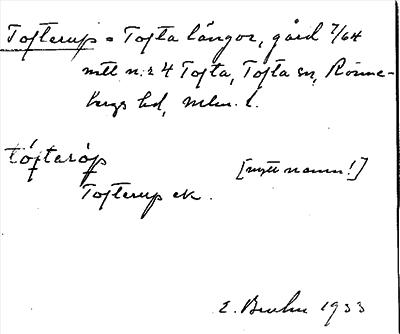 Tofterup = Tofta längor, gård 7/64
mtl n:r 4 Tofta, Tofta sn, Rönne-
bergs hd, Mlm. l.
tóftaróp [nytt namn!]
Tofterup ek.
E. Bruhn 1933